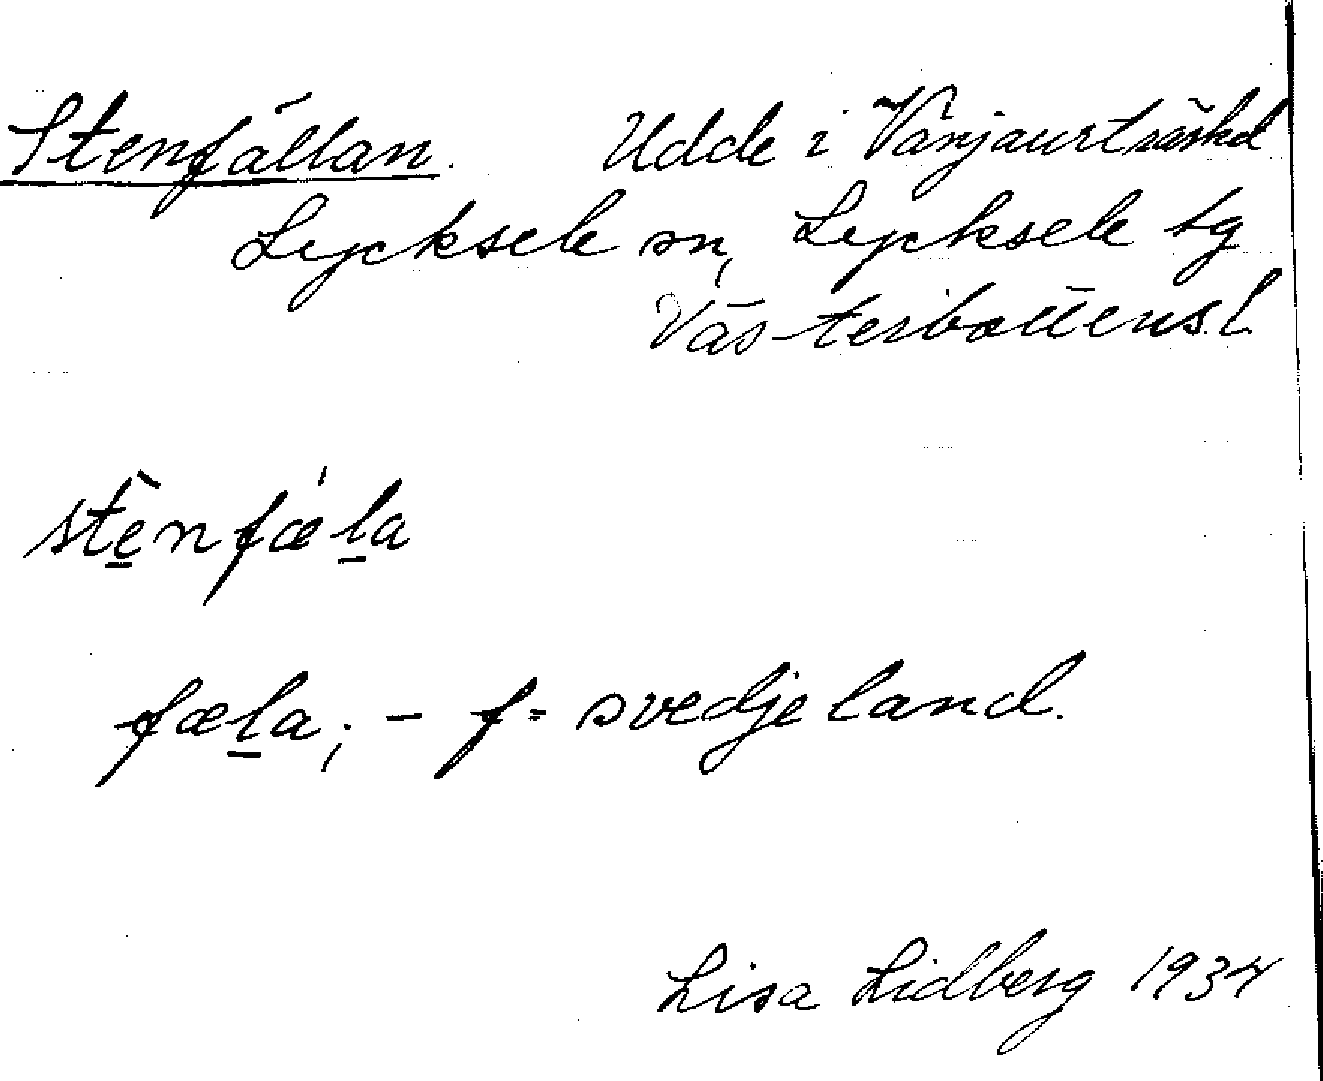 Stenfällan. Udde i Vänjaurträsket
Lycksele sn, Lycksele tg
Västerbottens l.
stè̱nfæ'l̲a
fæl̲a; - f = svedjeland.
Lisa Lidberg 1934